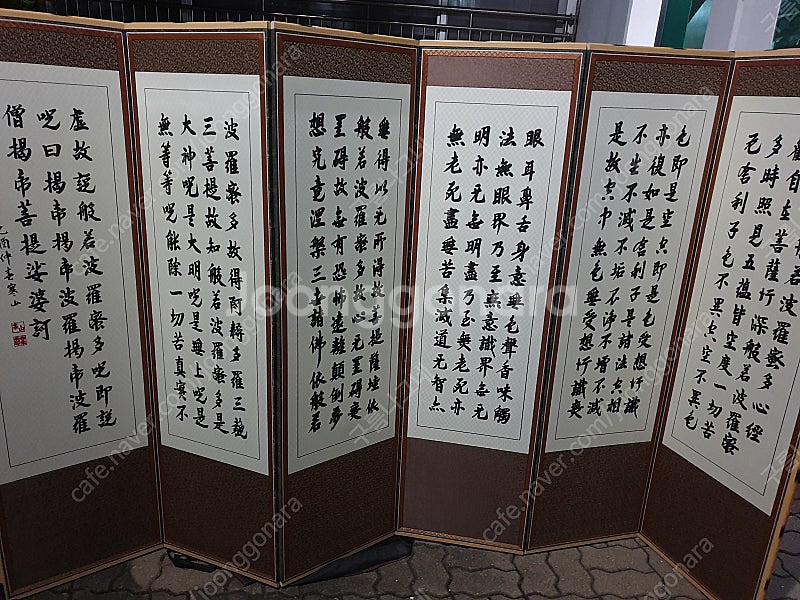 般若波羅蜜多心經
觀自在菩薩行深般若波羅蜜
多時照見五蘊皆空度一切苦
厄舍利子色不異空空不異色
色即是空空即是色受想行識
亦復如是舍利子是諸法空相
不生不滅不垢不淨不增不減
是故空中無色無受想行識無
眼耳鼻舌身意無色聲香味觸
法無眼界乃至無意識界無无
明亦无無明盡乃至無老死亦
無老死盡無苦集滅道無智亦
無得以无所得故菩提薩埵依
般若波羅蜜多故心无罣碍無
罣碍故無有恐怖遠離顛倒夢
想究竟涅槃三世諸佛依般若
波羅蜜多故得阿耨多羅三藐
三菩提故知般若波羅蜜多是
大神呪是大明呪是無上呪是
無等等呪能除一切苦真實不
虛故說般若波羅蜜多呪即說
呪曰揭帝揭帝波羅揭帝波羅
僧揭帝菩提娑婆訶
乙酉仲春寒山
Joonggonara
cafe.naver.com/joonggonara